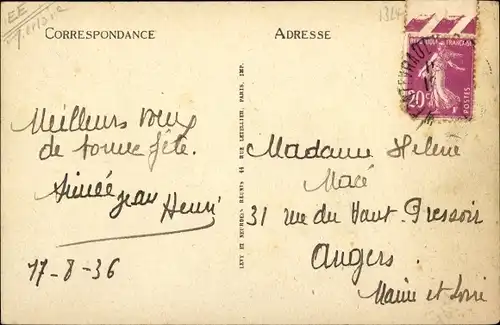 EE
CORRESPONDANCE
ADRESSE
RÉPUBLIQUE FRANÇAISE
20c
POSTES
Meilleurs vœux
de bonne fête.
Aimée Jean Henri
17-8-36
LEVY ET NEURDEIN RÉUNIS 44 RUE LETELLIER, PARIS, IMP.
Madame Hélène
Macé
31 rue du Haut Pressoir
Angers
Maine et Loire